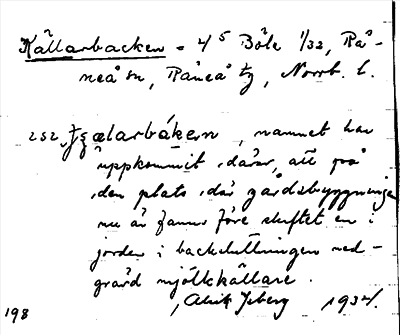 Källarbacken = 4⁵ Böle 1/32, Rå-
neå sn, Råneå tg, Norrb. l.
252. namnet har
uppkommit därav, att på
den plats där gårdsbyggningen
nu är fanns före skiftet en i
jorden i backsluttningen ned-
grävd mjölkkällare.
1934.
198